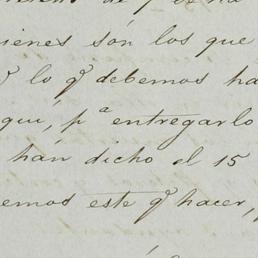 de
ienes són los que
lo q.e debemos ha
qui, p.a entregarlo
han dicho el 15
emos este q.e hacer,